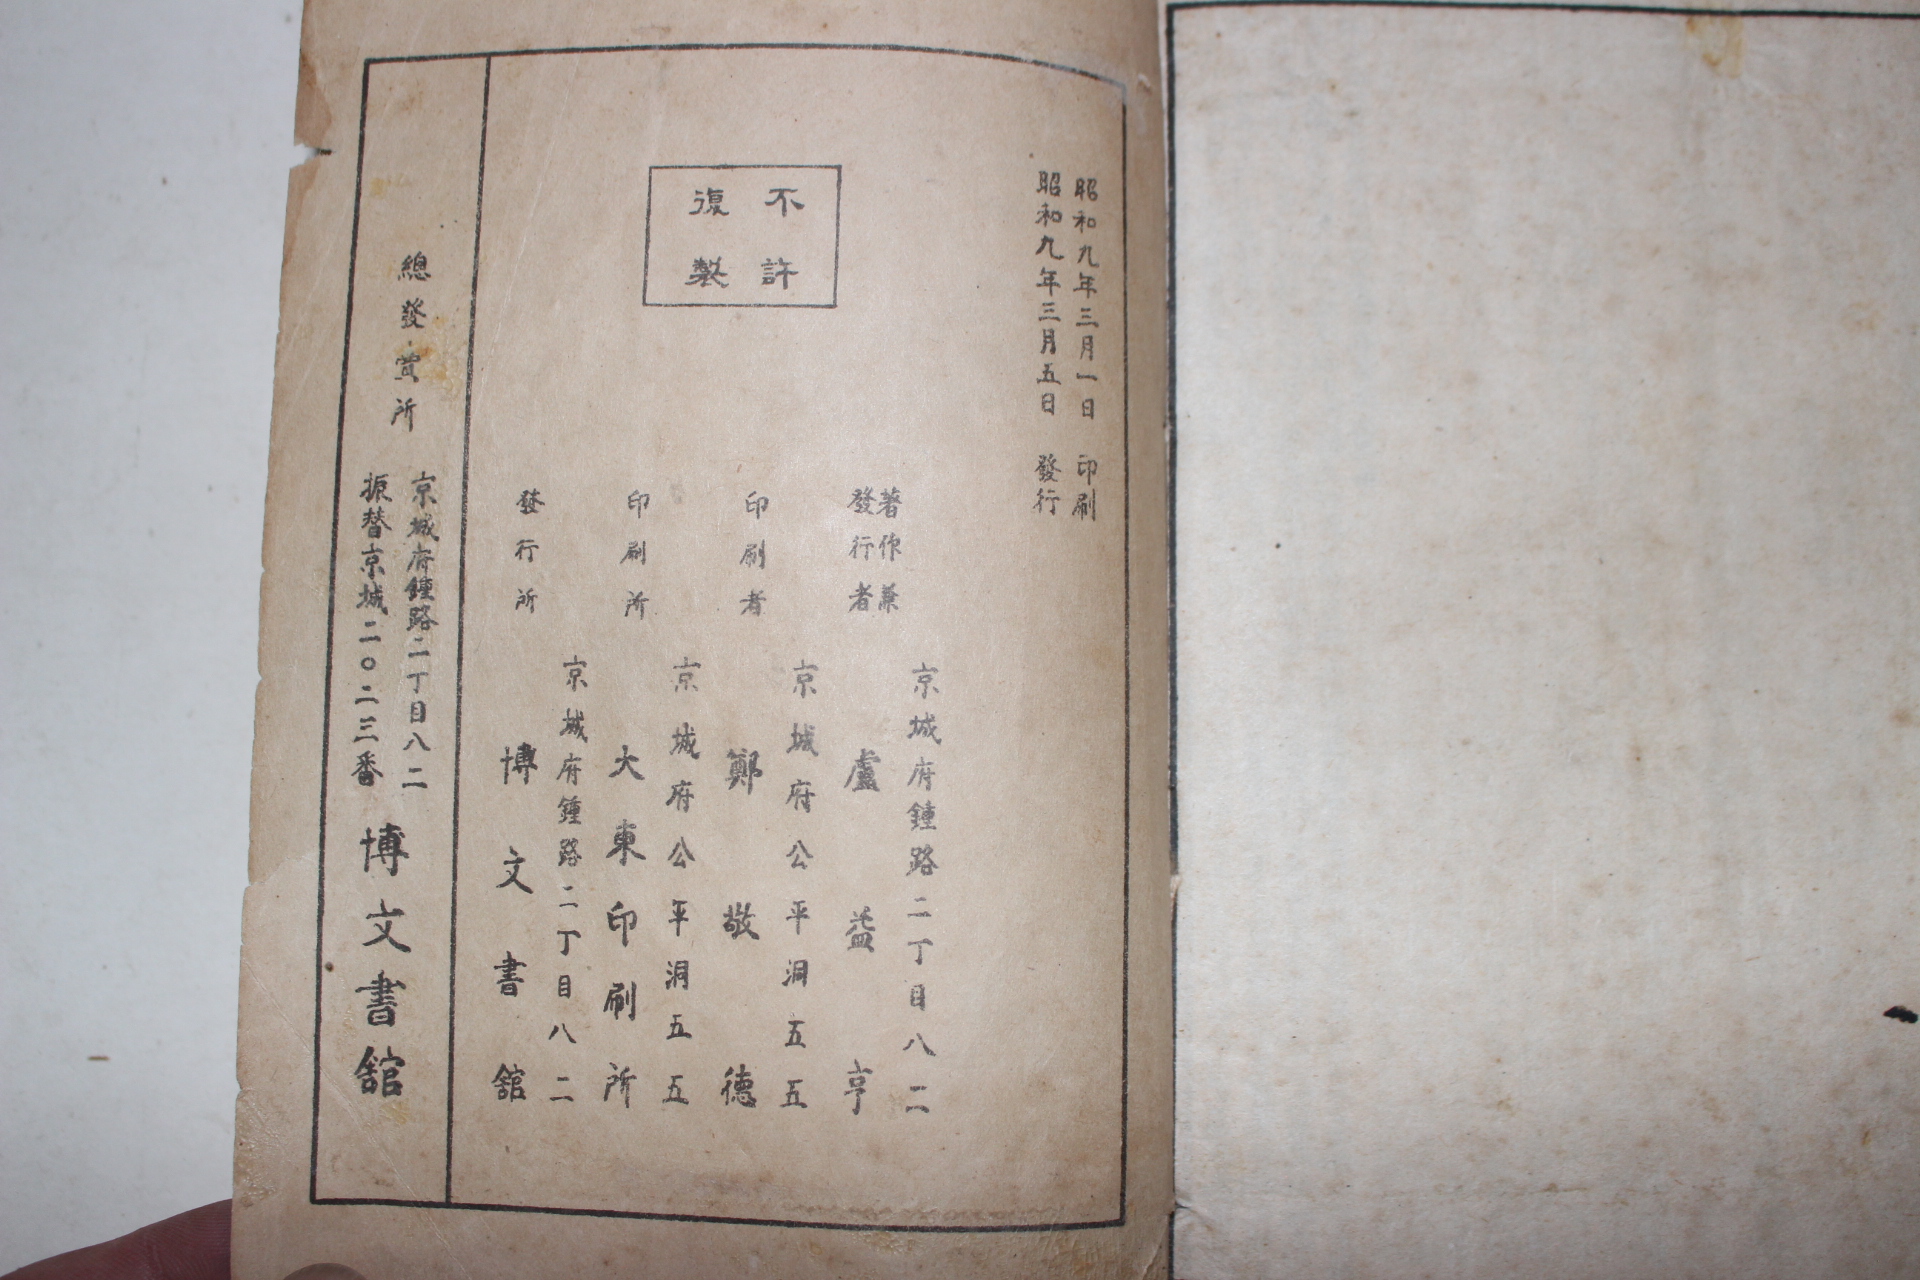 昭和九年三月一日 印刷
昭和九年三月五日 發行
不許
復製
著作兼
發行者
京城府鍾路二丁目八二
盧益亨
印刷者
京城府公平洞五五
鄭敬德
印刷所
京城府公平洞五五
大東印刷所
發行所
京城府鍾路二丁目八二
博文書舘
總發賣所
京城府鍾路二丁目八二
振替京城二〇二三番
博文書舘